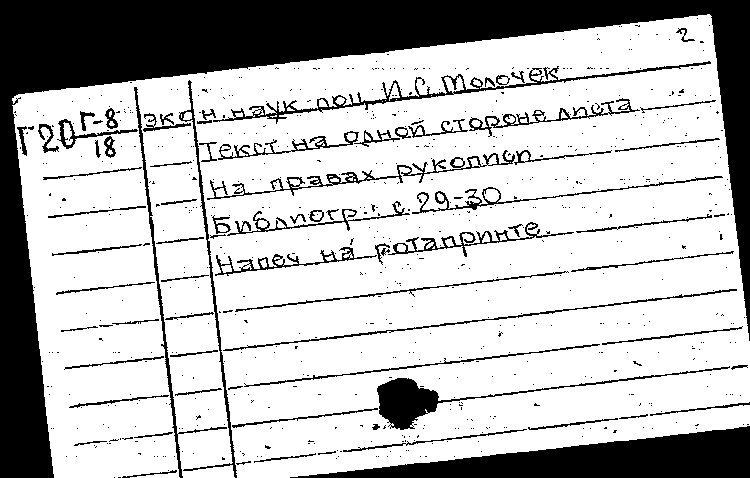 2
Г20 Г-8/18 экон. наук доц. И.С. Молочек
Текст на одной стороне листа.
На правах рукописи.
Библиогр.: с. 29-30.
Напеч. на ротапринте.